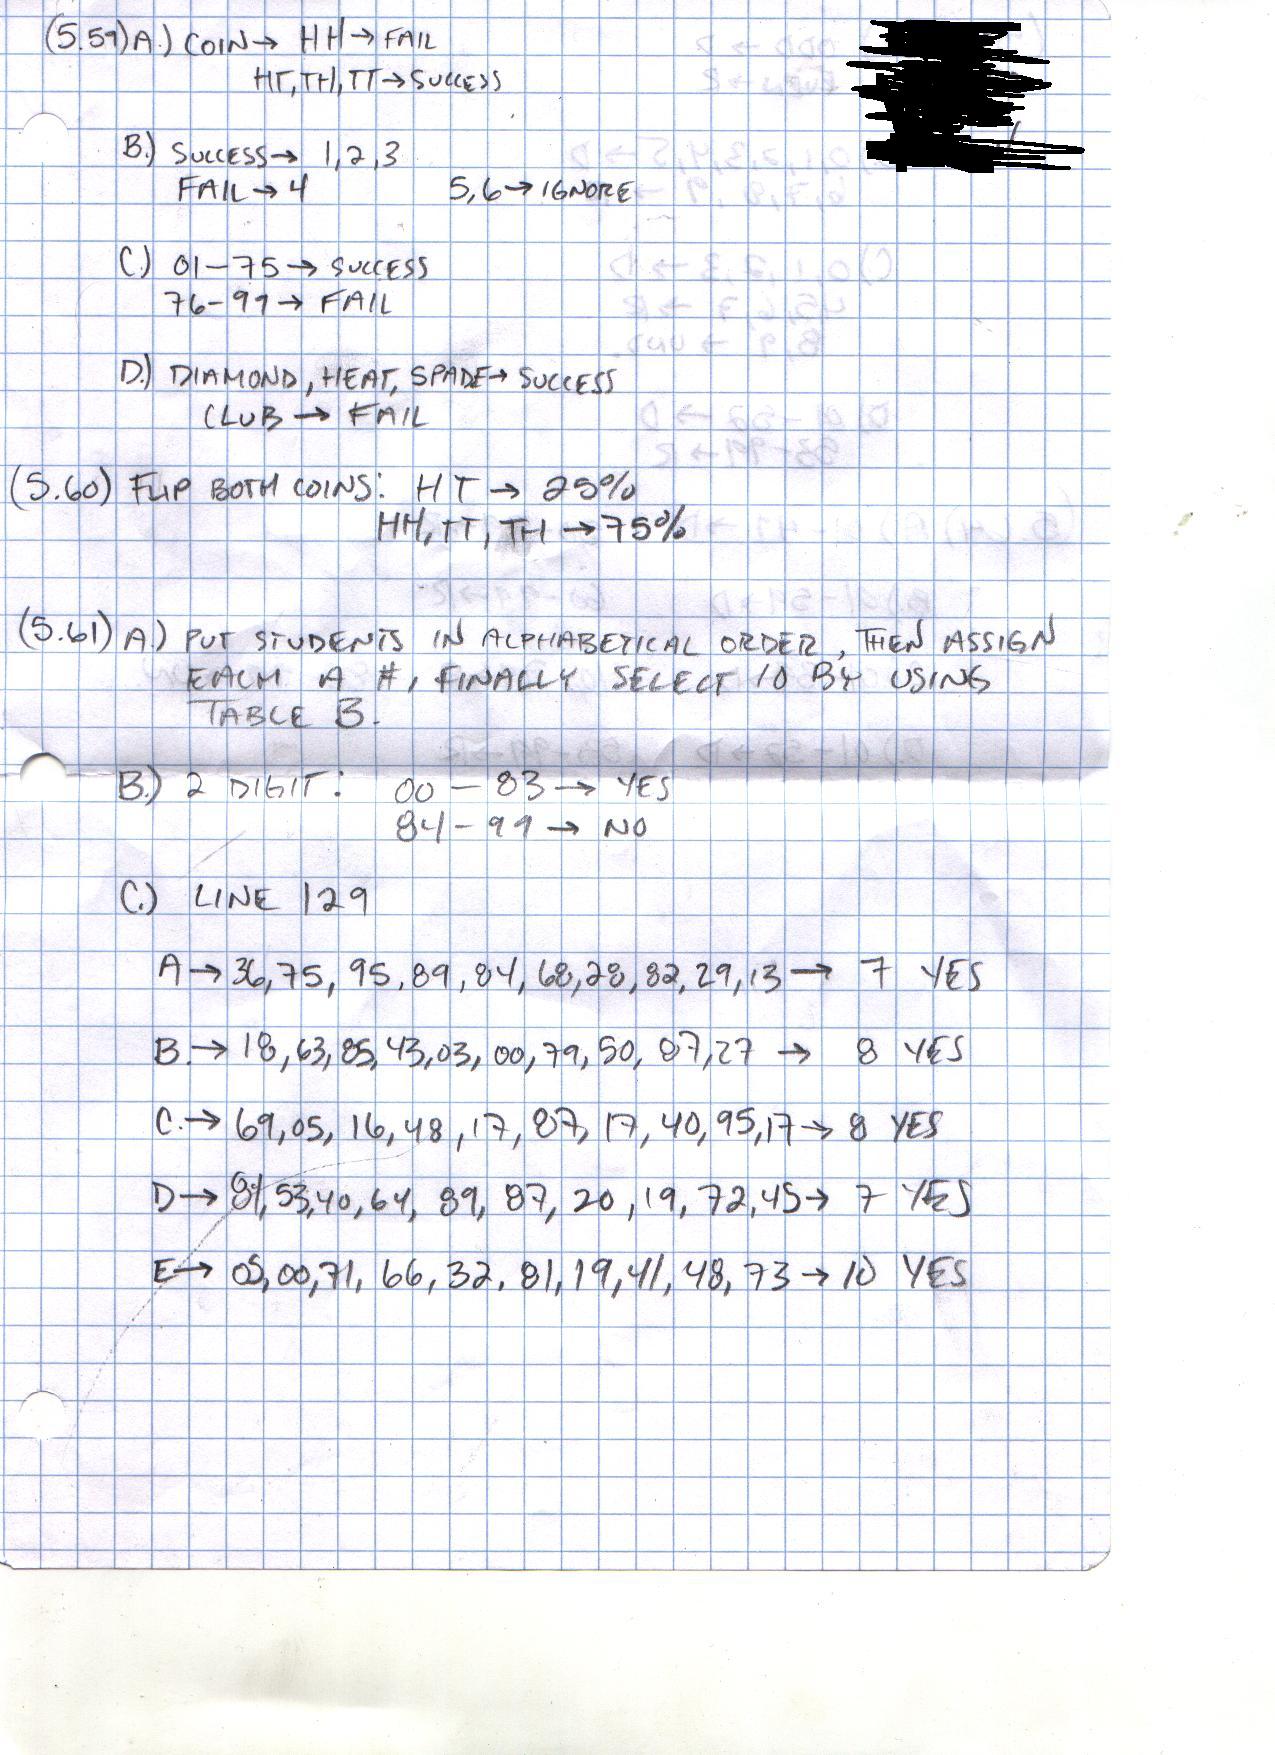 (5.59) A.) COIN→ HH→ FAIL
HT, TH, TT→ SUCCESS
B.) SUCCESS→ 1,2,3
FAIL→ 4 5,6→ IGNORE
C.) 01-75→ SUCCESS
76-99→ FAIL
D.) DIAMOND, HEAT, SPADE→ SUCCESS
CLUB → FAIL
(5.60) FLIP BOTH COINS: HT → 25%
HH, TT, TH → 75%
(5.61) A.) PUT STUDENTS IN ALPHABETICAL ORDER, THEN ASSIGN
EACH A #, FINALLY SELECT 10 BY USING
TABLE B.
B.) 2 DIGIT: 00 - 83 → YES
84-99 → NO
C.) LINE 129
A → 36, 75, 95, 89, 84, 68, 28, 82, 29, 13 → 7 YES
B. → 18, 63, 85, 43, 03, 00, 79, 50, 87, 27 → 8 YES
C. → 69, 05, 16, 48, 17, 87, 17, 40, 95, 17 → 8 YES
D → 84, 53, 40, 64, 89, 87, 20, 19, 72, 45 → 7 YES
E → 05, 00, 71, 66, 32, 81, 19, 41, 48, 73 → 10 YES